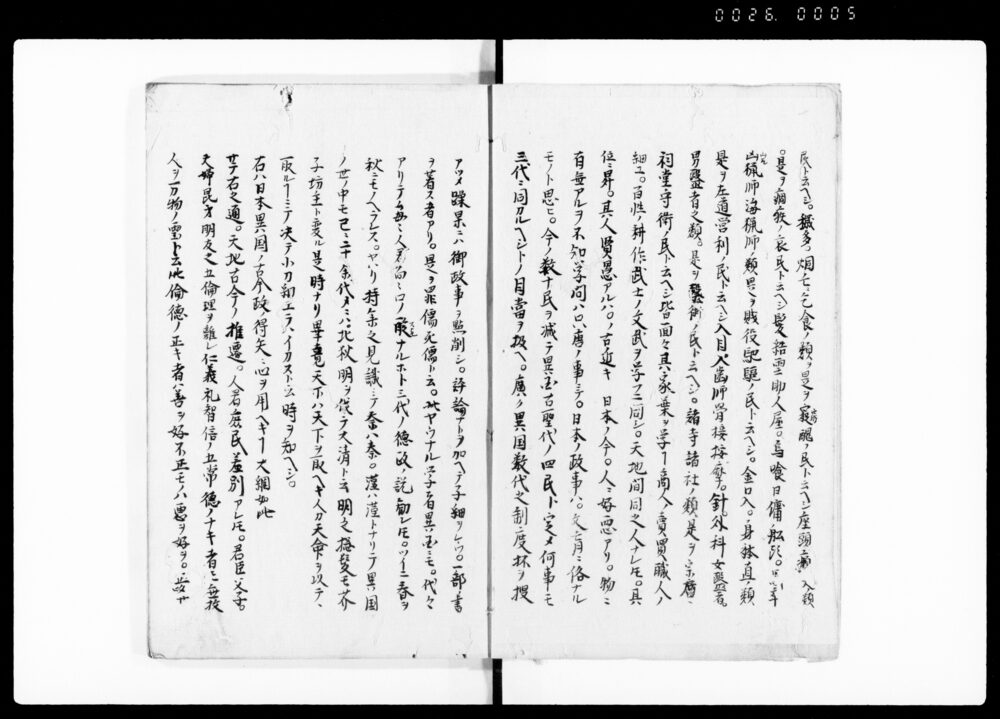 0026. 0005
民ト云ヘシ。穢多。烟亡。乞食ノ類ヲ是ヲ窮醜ノ民ト云ヘシ。座頭ノ類
。是ヲ痼疾ノ哀民ト云ヘシ。髪結。雪助。人屋。鳥喰。日傭。舩
山猟師海猟師ノ類是ヲ賎役駈駆ノ民ト云ヘシ。金口入。身孫直ノ類
是ヲ左道営利ノ民ト云ヘシ。入目入歯師骨接按摩。針外科女医者。
男医者之類。是ヲ医術ノ民ト云ヘシ。諸寺諸社ノ類是ヲ宗暦
祠堂守術ノ民ト云ヘシ。皆面々其ノ家業ヲ学フ。商人ノ賣買職人ノ
細工。百性ノ耕作武士ノ文武ヲ学フニ同シ。天地間同之人ナレ𪜈。其
位ニ昇。其人賢愚アルハ。古近キ日本ノ今。人ニ好悪アリ。物ニ
百毎アルヲ不知学問ハ口唐ノ事ニテ。日本ノ政事ハ。文盲ニ俗ナル
モノト思ヒ。今ノ数十民ヲ減テ異国古聖代ノ四民ト定メ何事モ
三代ニ同カルヘシトノ目當ヲ扱ヘ。廣ク異国数代之制度抔ヲ捜
アツメ躁暴ニハ御政事ヲ點削シ。評論ナトヲ加ヘテ子細ヲケツ。一部ノ書
ヲ著ス者アリ。是ヲ罪儒死儒ト云。此ヤウナル学者異国ニモ。代々
アリテ毎ニ人君ニロノ酸ナルホト三代ノ徳政ノ説勧レ𪜈。ツイニ春ヲ
秋ニモノヘラレス。ヤハリ持余之見識ニテ秦ハ秦。漢ハ漢トナリテ異国
ノ世ノ中モ已ニ二十余代メニハ北狄明ヲ伐テ大清ト云明之摠髪モ芥
子坊主ト変ル是時ナリ畢竟天ホハ天下ヲ取ヘキ人カ天命ヲ以テ。
取ルヿニテ決テ小刀細エラハイカストニ云時ヲ知ヘシ。
右ハ日本異国ノ古今政ノ得失ニ心ヲ用ヘキヿ大綱如此
サテ右之通。天地古今ノ推遷。人君庶民差別アレ𪜈。君臣父子。
夫婦昆弟朋友之五倫理ヲ離レ仁義礼智信ノ五常徳ノナキ者ニ無故
人ヲ万物ノ霊ト云此倫徳ノ正キ者ハ善ヲ好不正モノハ悪ヲ好ヲ。